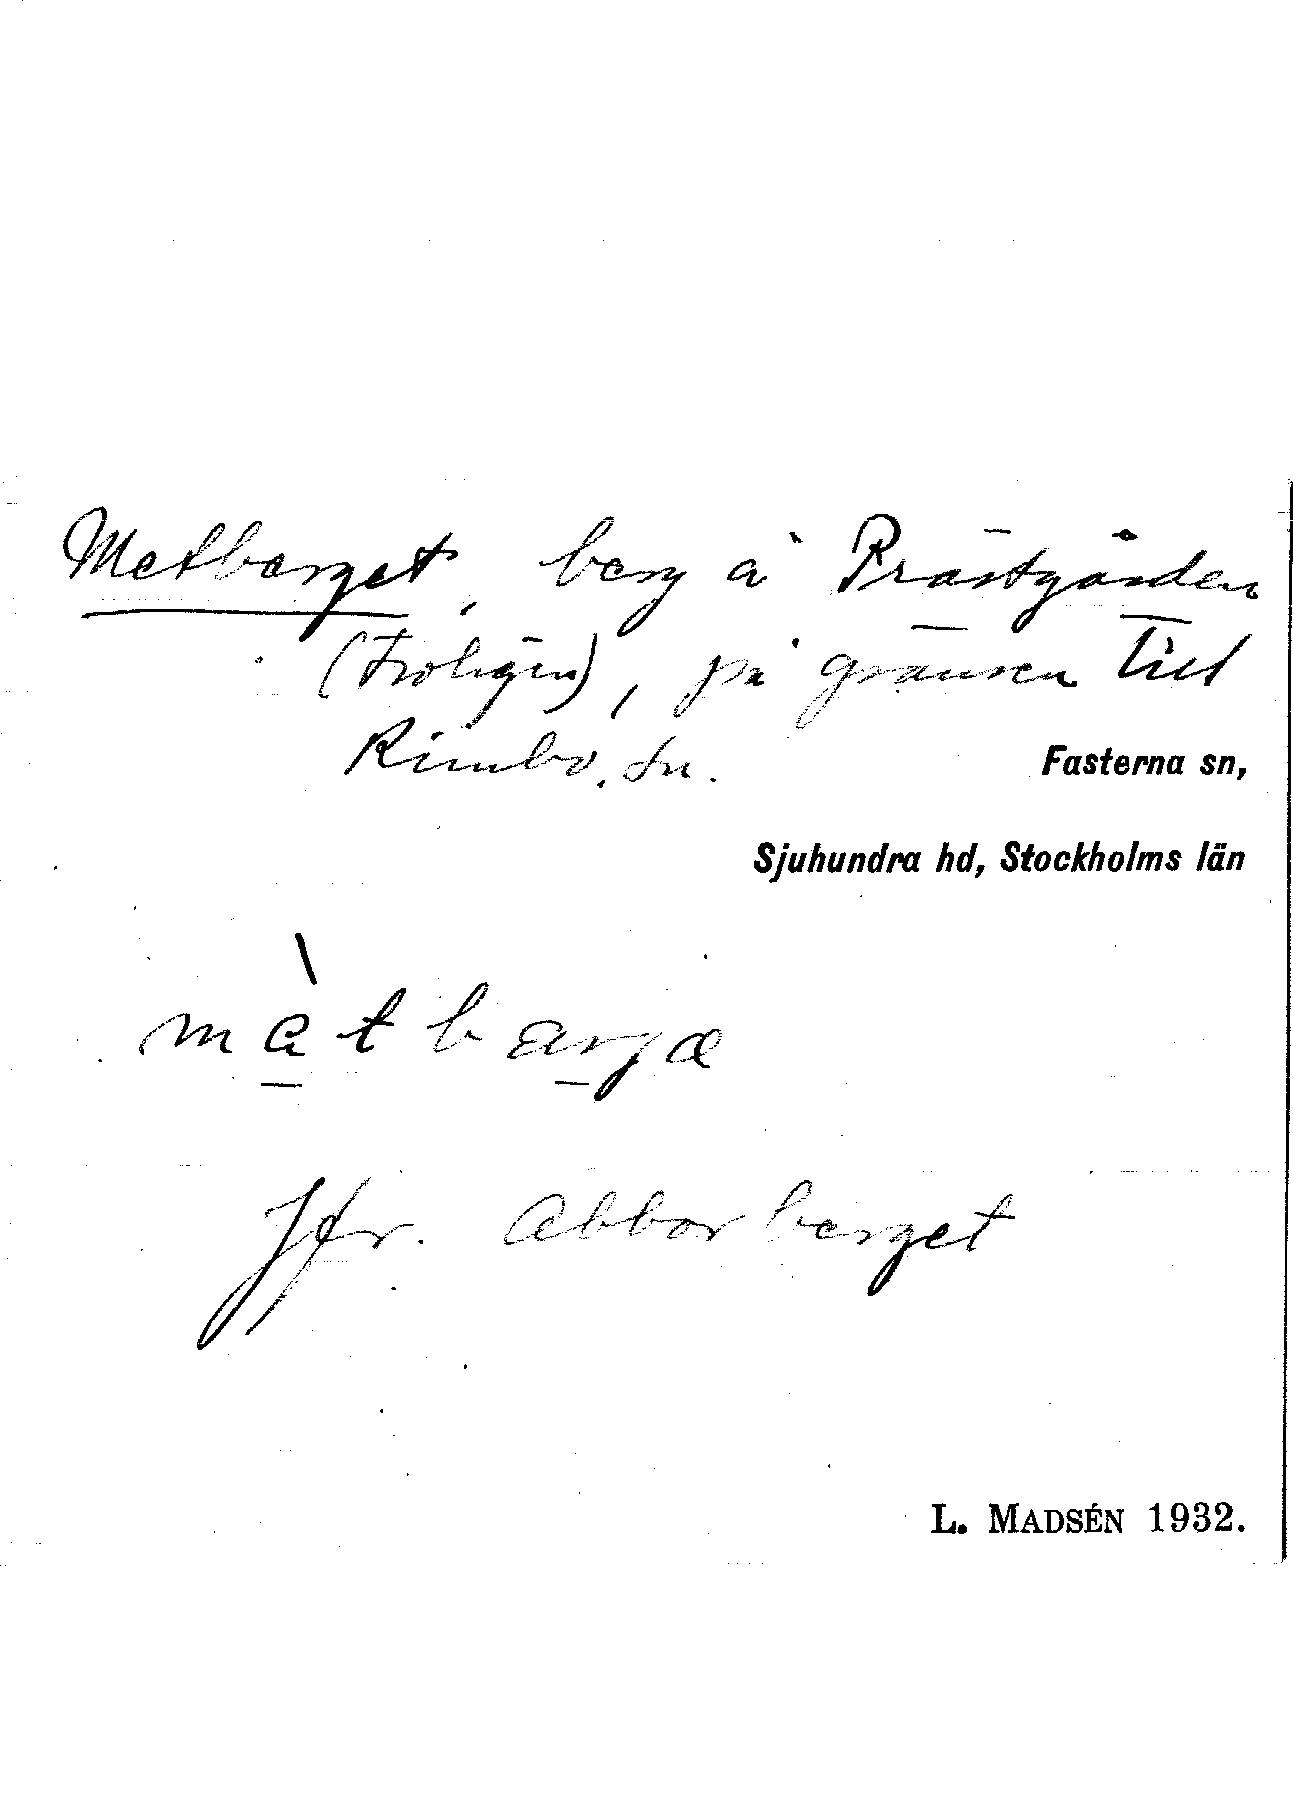 Metberget, berg å Prästgården
(Troligen), på gränsen till
Rimbo sn.
Fasterna sn,
Sjuhundra hd, Stockholms län
Jfr. Abborberget
L. MADSÉN 1932.